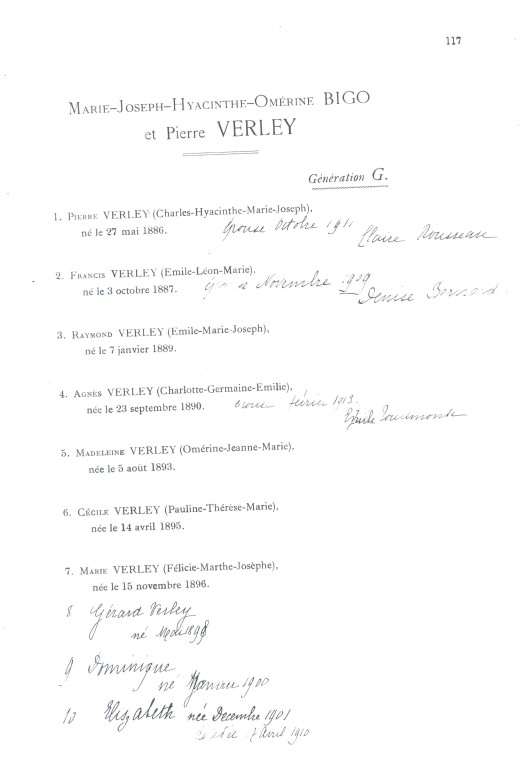 117
MARIE-JOSEPH-HYACINTHE-OMÉRINE BIGO
et Pierre VERLEY
Génération G.
1. PIERRE VERLEY (Charles-Hyacinthe-Marie-Joseph),
né le 27 mai 1886. Epouse Octobre 1911
Claire Rousseau
2. FRANCIS VERLEY (Emile-Léon-Marie),
né le 3 octobre 1887. Novembre 1909
Denise Bernard
3. RAYMOND VERLEY (Emile-Marie-Joseph),
né le 7 janvier 1889.
4. AGNÈS VERLEY (Charlotte-Germaine-Emilie),
née le 23 septembre 1890. février 1913
Emile
5. MADELEINE VERLEY (Omérine-Jeanne-Marie),
née le 5 août 1893.
6. CÉCILE VERLEY (Pauline-Thérèse-Marie),
née le 14 avril 1895.
7. MARIE VERLEY (Félicie-Marthe-Josèphe),
née le 15 novembre 1896.
8 Gérard Verley
né 1898
9 Dominique
né Janvier 1900
10 Elizabeth née Decembre 1901
Avril 1910